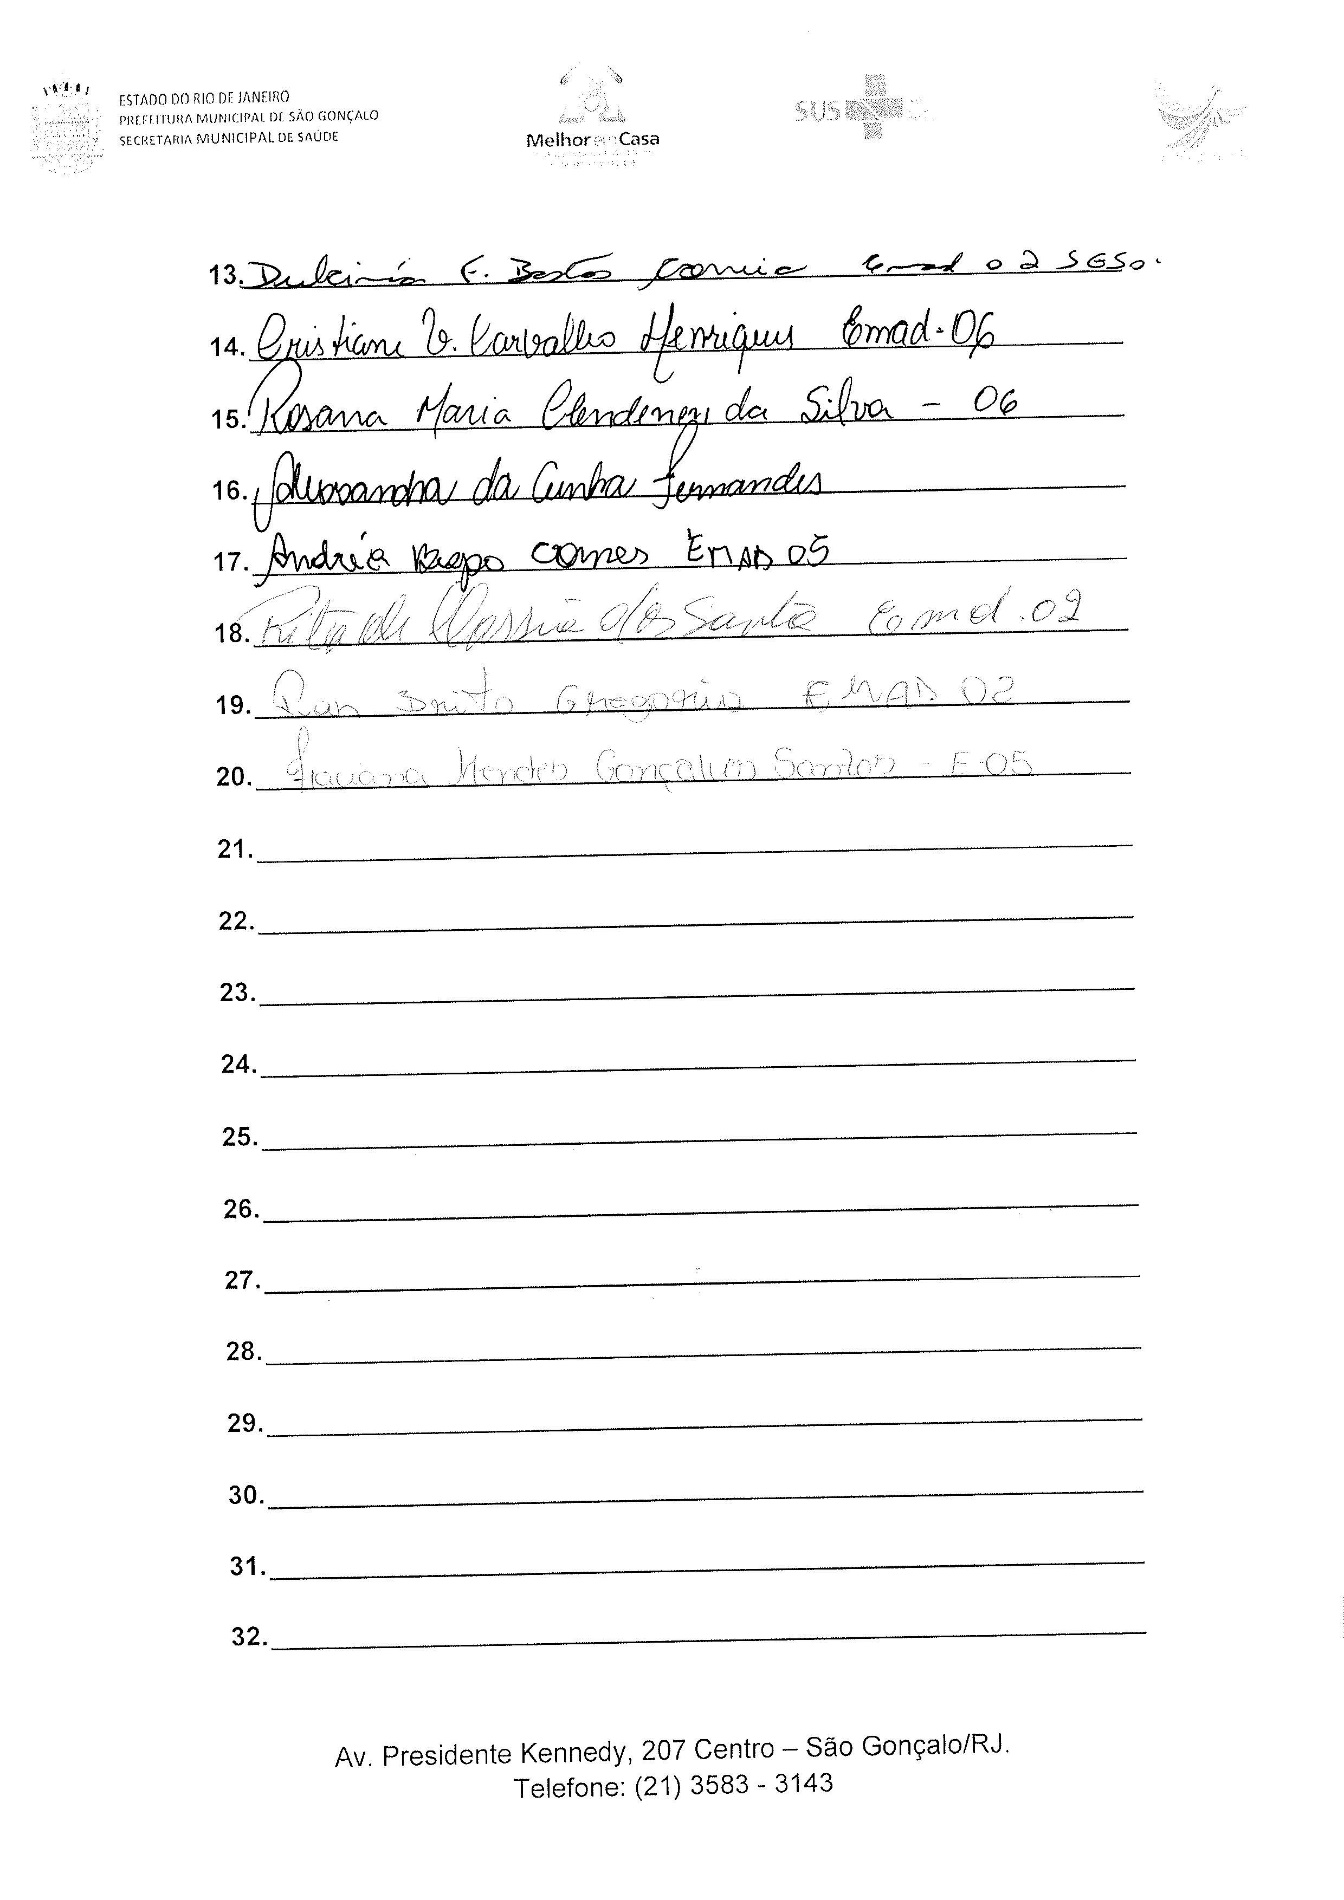 ESTADO DO RIO DE JANEIRO
PREFEITURA MUNICIPAL DE SÃO GONÇALO
SECRETARIA MUNICIPAL DE SAÚDE
Melhor em Casa
SUS
13. Dulcinéa F. Bastos Correia Emad 02 SGSO.
14. Cristiane V. Carvalho Henriques Emad-06
15. Rosana Maria Clendenez da Silva - 06
16. Alessandra da Cunha Fernandes
17. Andréa Gomes EMAD 05
18. Rita de Cassia dos Santos Emad.02
19. Brito Gregorio EMAD 02
20. Flaviana Mendes Gonçalves Santos - E-05
21.
22.
23.
24.
25.
26.
27.
28.
29.
30.
31.
32.
Av. Presidente Kennedy, 207 Centro – São Gonçalo/RJ.
Telefone: (21) 3583 - 3143